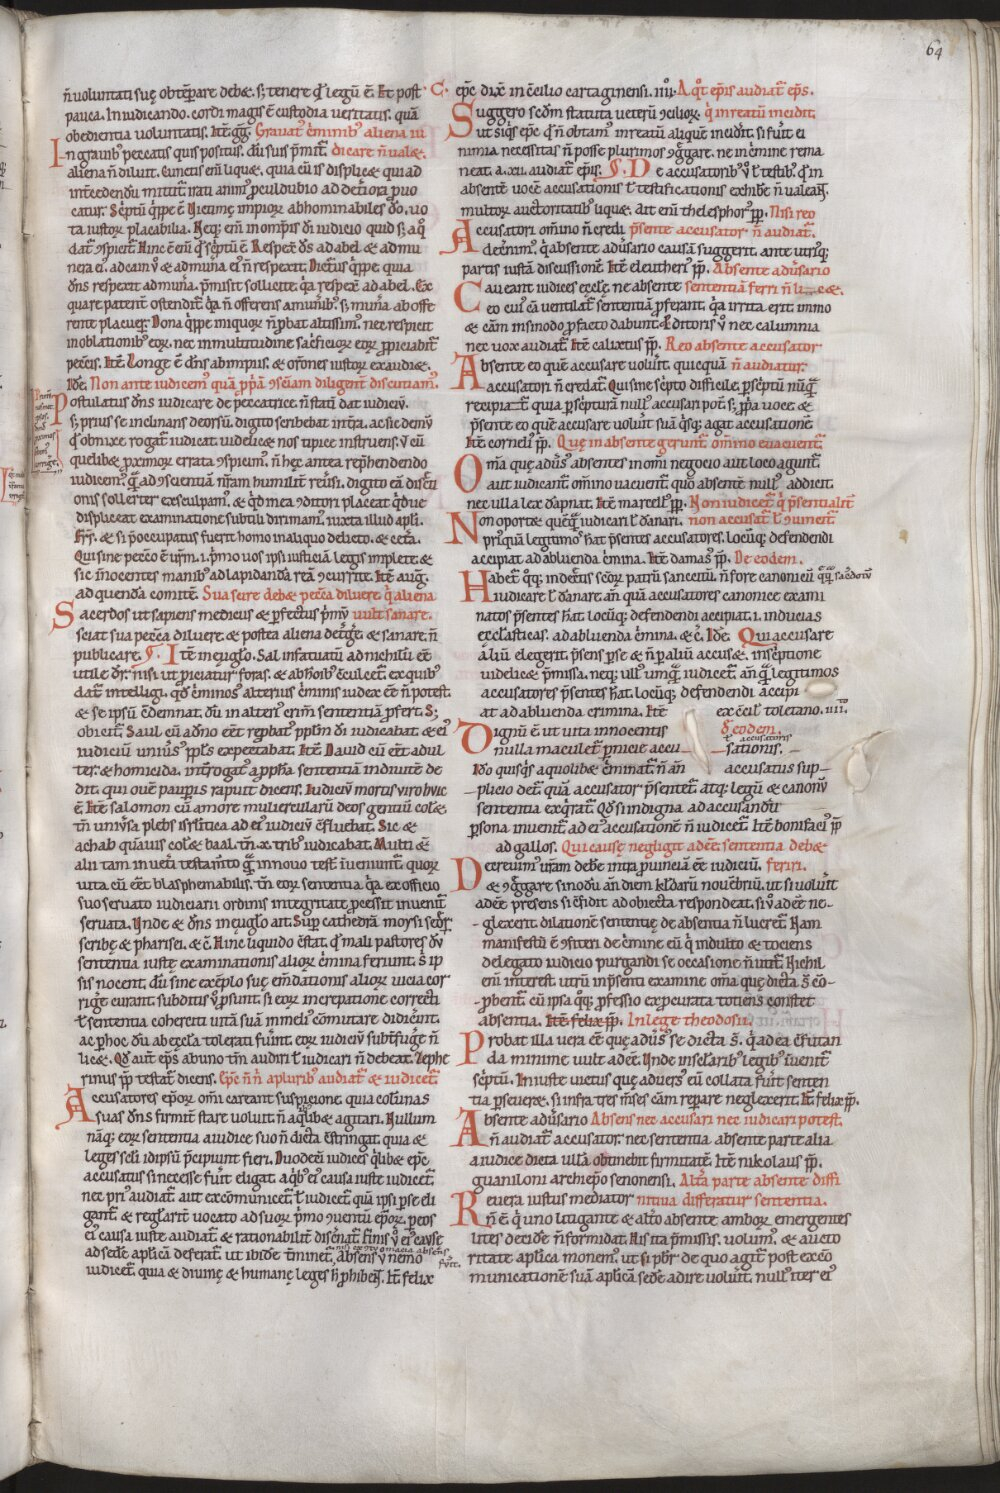 64
n̄ voluntati suę obtēperare debet. s; tenere qd̄ legū ē. Et post
pauca. In iudicando. cordi magis ē custodia veritatis. quā
obedientia voluntatis. Itē gg̃. Gravat̄ c̄minib; aliena iu
In gravib; peccatis quis positus. dū suis p̄mit̄. dicare n̄ valet.
aliena n̄ diluit. Cunctis enī liquet. quia cū is displicet qui ad
intercedendū mittit̄. irati animꝰ peculdubio ad deteriora ꝓuo
catur. Sc̄ptū q̄ppe ē. Victimę impioꝝ abhominabiles dō. uo
ta iustoꝝ placabilia. Neq; enī in omīpt̄is dī iudicio quid s; a q̊
dat̄ ꝯspicit̄. Hinc ē enī qd̄ sc̄ptū ē. Respexit dn̄s ad abel & ad mu
nera eiꝰ. ad cain v̊ & ad munera eiꝰ n̄ respexit. Dicturꝰ q̄ppe quia
dn̄s respexit ad munera. p̄misit sollicite. q̄a respexit ad abel. Ex
qua re patent̄ ostendit̄. q̄a n̄ offerens a munerib; s; munera ab offe
rente placuer̄. Dona q̄ppe iniquoꝝ n̄ ꝓbat altissimꝰ. nec respicit
in oblationib; eoꝝ. nec in multitudine sacrificioꝝ eoꝝ ꝓpiciabit̄
peccatis. Itē. Longe ē dn̄s ab impiis. & or̄ones iustoꝝ exaudiet.
Idē. Non ante iudicem̄ quā ꝓp̄a ꝯsc̄iam diligent̄ discutiam̄.
Postulatus dn̄s iudicare de peccatrice. n̄ statī dat iudiciū.
s; prius se inclinans deorsū. digito scribebat in t̄ra. ac sic demū
q̄ obnixe rogat̄ iudicat. videlicet nos tipice instruens. v̄ cū
quelibet ꝓximoꝝ errata ꝯspicimꝰ. n̄ hec antea rep̄hendendo
iudicem̄. q̄ ad ꝯscientiā nr̄am humilit̄ reūsi. digito eā discreti
onis sollerter exsculpam̄. & qd̄ in ea ꝯditori placeat qd̄ue
displiceat examinatione subtili dirimam̄. iuxta illud apl̄i.
Fr̄s. & si p̄occupatus fuerit homo in aliquo delicto. & cetera.
Qui sine peccato ē vr̄m. i. p̄mo vos ipsi iusticiā legis implete. &
sic innocentes manib; ad lapidandā reā ꝯcurrite. Itē aug̃.
ad quenda comitē. Sua scire debet peccata diluere q̄ aliena
Sacerdos ut sapiens medicus & ꝑfectus p̄mū vult sanare.
sciat sua peccata diluere. & postea aliena detegere. & sanare. n̄
publicare. Itē in euglo. Sal infatuatū ad nichilū ēē
utile dr̄. nisi ut ꝓiciatur foras. & ab hoīb; cculcet̄. ex quib;
dat̄ intelligi. qd̄ c̄minosꝰ alterius c̄minis iudex ēē n̄ potest.
& se ipsū cdemnat. dū in alterū crim̄ sententiā ꝓfert. S;
obicit̄. Saul cū a dn̄o eēt reꝓbatꝰ pplm̄ dī iudicabat. & eiꝰ
iudiciū uniusꝰ ppl̄s expectabat. Itē. David cū eēt adul
ter. & homicida. int̄rogatꝰ a ꝓpha sententiā in diuitē de
dit. qui ouē pauꝑis rapuit dicens. Iudiciū mortis viro huic
ē. Itē salomon cū amore muliercularū deos gentiū colet.
tn̄ uniūsa plebs isrl̄itica ad eiꝰ iudiciū cfluebat. Sic &
achab quāuis colet baal. tn̄. x. tribꝰ iudicabat. Multi &
alii tam in vet̄i testam̄to q̄ in novo test̄. inveniunt̄. quoꝝ
vita cū eēt blasphemabilis. tn̄ eoꝝ sententia q̄a ex officio
suo servato iudiciarii ordinis integritate ꝓcessit invenit̄
servata. Unde & dn̄s in euglo ait. Suꝑ cathedrā moysi sedeꝝ
scribę & pharisei. & c̄. Hinc liquido cstat. qd̄ mali pastores dū
sententia iustę examinationis alioꝝ c̄mina feriunt. s; ip
sis nocent. dū sine exēplo suę em̄dationis alioꝝ vicia cor
rigere curant. subditis v̊ ꝓsunt. si eoꝝ increpatione correcti
ł sententia coherciti vitā suā in meliꝰ cōmutare didicerint.
ac ꝑ hoc dū ab eccl̄a tolerati fuerint. eoꝝ iudiciū subt̄fugere n̄
licet. Qd̄ aut̄ ep̄s ab uno tm̄ audiri ł iudicari n̄ debeat. Zephe
rinus pp̄ testat̄ dicens. Ep̄c n̄ n̄ a pluribꝰ audiat̄ & iudicet̄.
Accusatores ep̄oꝝ om̄i careant suspicione. quia colūnas
suas dn̄s firmit̄ stare voluit. n̄ a q̄libet agitari. Nullum
nāq; eoꝝ sententia a iudice suo n̄ dicta cstringat. quia &
leges scl̄i id ipsū p̄cipiunt fieri. Duodecī iudices q̄libet ep̄c
accusatꝰ si necesse fuerit eligat. a q̄b; eiꝰ causa iuste iudicet̄.
nec priꝰ audiat̄. aut excōmunicet̄. ł iudicet̄. quā ipsi ꝑ se eli
gant̄. & reglarit̄ vocato ad suoꝝ p̄mo ꝯventū ep̄oꝝ. ꝑ eos
eiꝰ causa iuste audiat̄. & rationabilit̄ discernat̄. Finis v̊ eiꝰ causę
ad sedē aplicā deferat̄. ut ibidē t̄minet̄. Absens v̊ nemo
iudicet̄. quia & divinę & humanę leges h̄ ꝓhibent. Itē felix
ep̄c dixit in cōcilio cartaginensi. iiiꝰ. A qt̄ ep̄is audiat̄ ep̄s.
Suggero scd̄m statuta veterū ꝯcilioꝝ. q̄ in reatū incidit.
ut siq̄s ep̄c qd̄ n̄ obtam̄ in reatū aliquē incidit̄. si fuerit ei
nimia necessitas n̄ posse plurimos ꝯgregare. ne in c̄mine rema
neat. a. xii. audiat̄ ep̄is. De accusatorib; v̊ ł testib; qd̄ in
absentē vocē accusationis ł testificationis exhibere n̄ valeant.
multoꝝ auctoritatib; liquet. Ait enī thelesphorꝰ pp̄. Nisi reo
Accusatori om̄ino n̄ credi p̄sente accusator n̄ audiat̄.
decrevimꝰ. q̄ absente adūsario causā suggerit. ante utriusq;
partis iustā discussionē. Itē eleutherꝰ pp̄. Absente adūsario
Caveant iudices eccl̄ę. ne absente sententiā ferri n̄ licet.
eo cuiꝰ ea ventilat̄. sententiā ꝓferant. q̄a irrita erit. immo
& cām in sinodo ꝓ facto dabunt. Proditoris v̊ nec calumnia
nec vox audiat̄. Itē calixtus pp̄. Reo absente accusator
Absente eo quē accusare voluerit. quicquā n̄ audiatur.
accusatori n̄ credat̄. Qui sine sc̄pto difficile. ꝑ sc̄ptū nūq̄
recipiat̄. quia ꝑ scripturā nullꝰ accusari pot̄. s; ꝓp̄a voce. &
p̄sente eo quē accusare voluerit. suā q̄sq; agat accusationē.
Itē cornelii pp̄. Quę in absente gerunt̄. om̄ino evacuent̄.
Om̄ia quę adūsꝰ absentes in om̄i negocio aut loco agunt̄.
aut iudicant̄. om̄ino vacuent̄. quo absentē nullꝰ addicit.
nec ulla lex dāpnat. Itē marcellꝰ pp̄. Non iudicet̄ q̄ p̄sentialit̄
Non oportet quēq̄ iudicari ł dānari. non accusat̄ ł ꝯvincit̄.
priꝰquā legitimos hat p̄sentes accusatores. locūq; defendendi
accipiat ad abluenda c̄mina. Itē damasꝰ pp̄. De eodem.
Habet̄ q̊q; in decretis scoꝝ patrū sanccitū. n̄ fore canonicū q̄q̄ sacdotū
iudicare ł dānare. an̄ quā accusatores canonice exami
natos p̄sentes hat. locūq; defendendi accipiat. i. inducias
eccl̄asticas. ad abluenda c̄mina. & c̄. Idē. Qui accusare
aliū elegerit. p̄sens ꝑ se & n̄ ꝑ aliū accuset. inscriptione
videlicet p̄missa. neq; ullꝰ umq̄ iudicet̄. an̄ q̄ legitimos
accusatores p̄sentes hat. locūq; defendendi accipi
at ad abluenda crimina. Itē ex cc̄il̄. toletano. iiiiͭͦ.
Dignū ē ut vita innocentis De eodem.
nulla maculet̄ ꝑnicie accu- sationis. ł accusatoris
Idō quisq̄s a quolibet c̄minat̄. n̄ an̄ accusatus sup-
plicio det̄. quā accusator p̄sentet̄. atq; legū & canonū
sententia exq̄rat̄. Qd̄ si indigna ad accusandū
ꝑsona invenit̄. ad eiꝰ accusationē n̄ iudicet̄. Itē bonifaciꝰ pp̄
ad gallos. Qui causę negligit adeē. sententia debet
Decrevimꝰ vr̄am debere intra ꝓvinciā eēt iudiciū. ferri.
& ꝯgregare sinodū an̄ diem kl̄darū novēbriū. ut si voluerit
adeē p̄sens si cfidit ad obiecta respondeat. si v̊ adeē ne-
glexerit. dilationē sententię de absentia n̄ lucret̄. Nam
manifestū ē ꝯfiteri de c̄mine eū q̄ indulto & tociens
delegato iudicio purgandi se occasione n̄ utit̄. Nichil
enī interest. utrū in p̄senti examine om̄ia quę dicta s̄ cō-
ꝓbent̄. cū ipsa q̊q; ꝓfessio ex ꝓcurata totiens constet
absentia. Itē felix pp̄. In lege theodosii.
Probat illa vera ēē quę adūsꝰ se dicta s̄. q̄ ad ea cfutan
da minime vult adeē. Unde in sclarib; legib; invenit̄
sc̄ptū. In iuste victus quę adversꝰ eū collata fuerit senten
tia ꝑseveret. si infra tres menses cām reparare neglexerit. Itē felix pp̄.
Absente adūsario Absens nec accusari nec iudicari potest.
n̄ audiat̄ accusator. nec sententia absente parte alia
a iudice dicta ullā obtinebit firmitatē. Itē nikolaus pp̄.
guaniloni archiep̄o senonensi. Alt̄a parte absente diffi
Revera iustus mediator nitiva differatur sententia.
n̄ ē q̄ uno litigante & alt̄o absente. amboꝝ emergentes
lites decidere n̄ formidat. His ita p̄missis. volumꝰ. & aucto
ritate aplica monemꝰ. ut si pbr̄ de quo agit̄ post excō
municationē suā aplicā sedē adire voluerit. nullꝰ iter eiꝰ